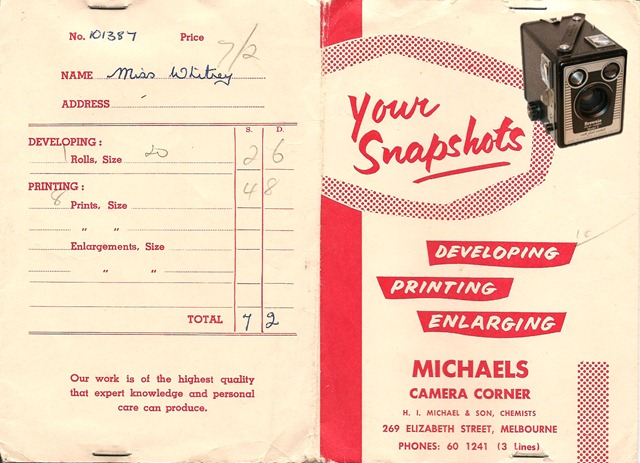 No. 101387 Price 7/2
NAME Miss Whitrey
ADDRESS
S. D.
DEVELOPING :
1 Rolls, Size 20 2 6
PRINTING :
8 Prints, Size 4 8
" "
Enlargements, Size
" "
TOTAL 7 2
Our work is of the highest quality
that expert knowledge and personal
care can produce.
Your
Snapshots
DEVELOPING
PRINTING
ENLARGING
MICHAELS
CAMERA CORNER
H. I. MICHAEL & SON, CHEMISTS
269 ELIZABETH STREET, MELBOURNE
PHONES: 60 1241 (3 Lines)
Brownie